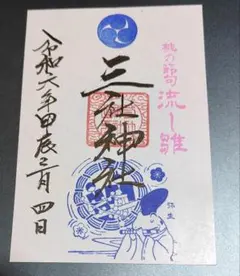 桃の節句
流し雛
弥生
三社神社
令和六年甲辰三月四日